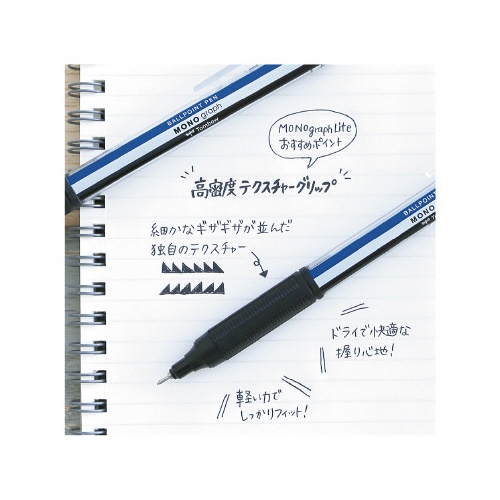 BALLPOINT PEN
MONO graph
Tombow
MONOgraphLite
おすすめポイント
高密度テクスチャーグリップ
細かなギザギザが並んだ
独自のテクスチャー
BALLPOINT
MONO
ドライで快適な
握り心地!
軽い力で
しっかりフィット!